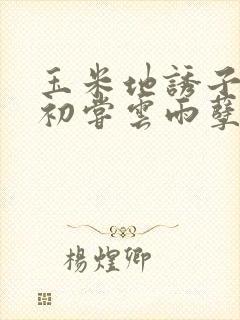 玉米地誘子
初嘗雲雨孽
楊煌卿